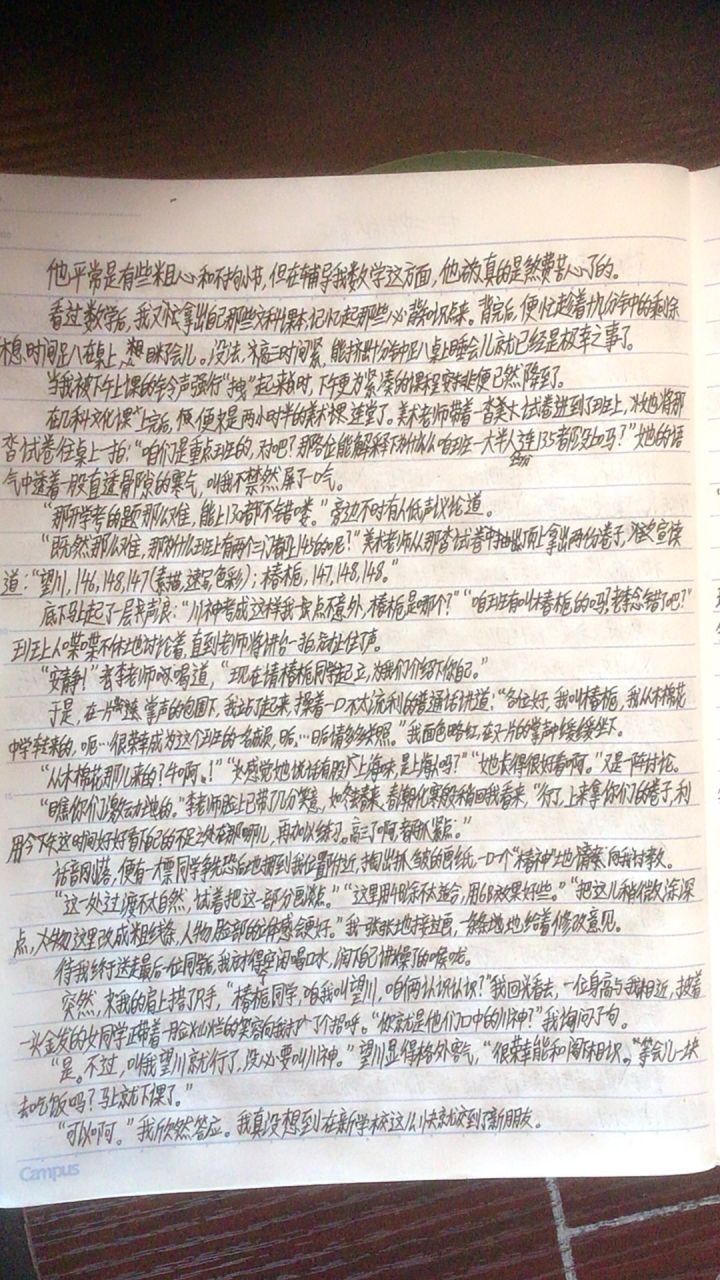 他平常是有些粗心和不拘小节，但在辅导我数学这方面，他认真的是煞费苦心了的。
看过数学后，我又拿出自己那些文科课本，记忆起那些必背知识点来。背完后，便趁着十几分钟的剩余
时间趴在桌上，眯了会儿。没法，高三时间紧，能挤出十分钟在桌上睡会儿就已经是极幸之事了。
当我被下午上课的铃声强行“拽”起来的时，下午更为紧凑的课程安排便已然降到了。
在几科文化课上完后，便是两小时半的美术课连堂了。美术老师带着一沓美术试卷进到了班上，她将那
沓试卷往桌上一拍：“咱们是重点班的，对吧？那各位能解释下为什么咱班一大半人连135都没上吗？”她的语
气中透着一股直透骨隙的寒气，叫我不禁然屏了口气。
“那开学考的题那么难，能上130都不错喽。”旁边不时有人低声议论道。
“既然那么难，那为什么班上有两个三门都上145的呢？”美术老师从那沓试卷中抽出顶上拿出两份卷子，宣读
道：“望川，146，148，147（素描，速写，色彩）；椿栀，147，148，148。”
底下马上起了一层声浪：“川神考成这样我一点不意外，椿栀是哪个？”“咱班有叫椿栀的吗？老李念错了吧？”
班上人喋喋不休地讨论着，直到老师将讲台一拍才止住了声。
“安静！”李老师喝道，“现在请椿栀同学起立，为我们介绍下你自己。”
于是，在一片掌声的包围下，我站了起来，操着一口不太流利的普通话讲道：“各位好，我叫椿栀，我从木棉花
中学转来的，呃…很荣幸成为这个班的一名成员，呃…请多多关照。”我面色略红，在又一片的掌声中缓缓坐下。
“从木棉花那儿来的？牛啊！”“感觉她说话有股上海味，是上海人吗？”“她长得很好看啊。”又是一阵讨论。
“瞧你们一个个没出息的。”李老师脸上已带了几分笑意，“行了，上来拿你们的卷子，利
用今下午这时间好好看下自己的不足之处在哪哪儿，再加以练习。高三了啊，都抓紧点。”
话音刚落，便有一票同学争先恐后地挪到我位置附近，掏出皱的画纸，一口一个“椿神”地向我讨教。
“这一处过渡不太自然，试着把这一部分画淡。”“这里用不太适合，用6B效果好些。”“把这儿稍微涂深
点，人物这里改成粗线条，人物脸部的立体感会更好。”我一张张地接过画，一条条地给着修改意见。
待我终于送走最后一位同学后，我方才得空闲喝口水，润下自己讲燥了的喉咙。
突然，我的肩上搭了只手，“椿栀同学，我叫望川，咱俩认识认识？”我回头看去，一位身高与我相近，披着
一头金发的女同学正带着一脸灿烂的笑容向我打了个招呼。“你就是他们口中的川神？”我询问了句。
“是。不过，叫我望川就行了，没必要叫川神。”望川显得格外客气，“很荣幸能和阁下相识。”“等会儿一块
去吃饭吗？马上就下课了。”
“可以啊。”我欣然答应。我真没想到在新学校这么快就交到了新朋友。
Campus